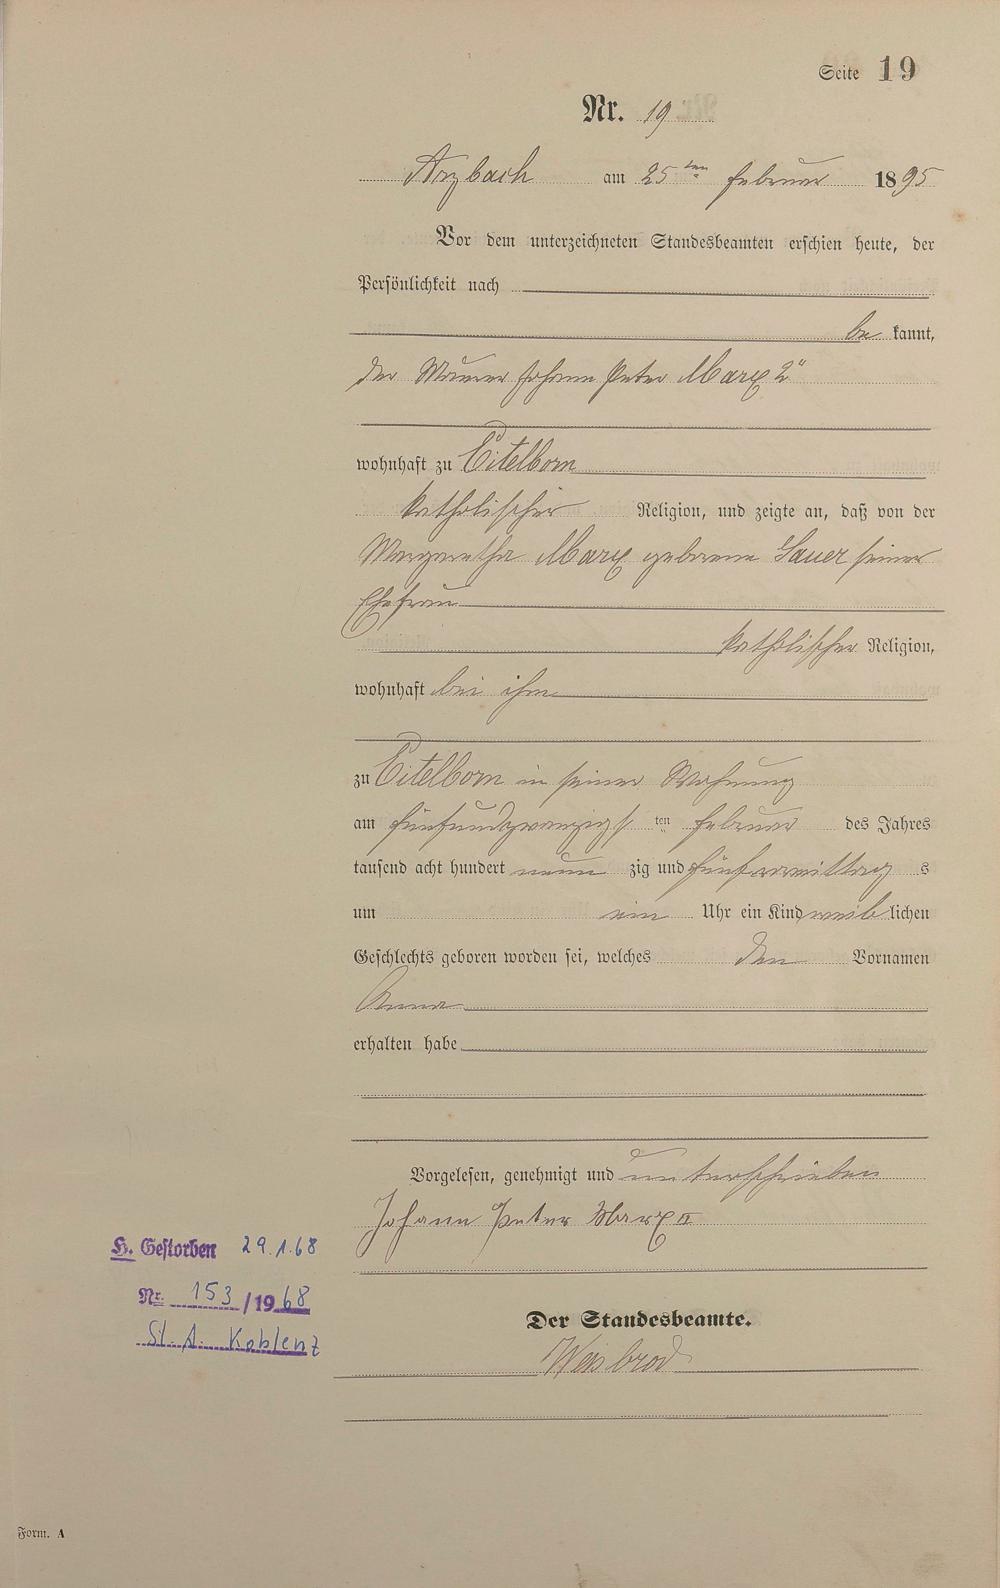 Seite 19
Nr. 19
Arzbach am 25ten Februar 1895
Vor dem unterzeichneten Standesbeamten erschien heute, der
Persönlichkeit nach
be kannt,
der Maurer Johann Peter Marx 2r
wohnhaft zu Eitelborn
katholischer Religion, und zeigte an, daß von der
Margaretha Marx geborene Sauer seiner
Ehefrau
katholischer Religion,
wohnhaft bei ihm
zu Eitelborn in seiner Wohnung
am fünfundzwanzigs ten Februar des Jahres
tausend acht hundert neun zig und fünf vormittag s
um ein Uhr ein Kind weib lichen
Geschlechts geboren worden sei, welches den Vornamen
Anna
erhalten habe
Vorgelesen, genehmigt und unterschrieben
Johann Peter Marx II
H. Gestorben 29.1.68
Nr. 153/1968
St. A. Koblenz
Der Standesbeamte.
Weisbrod
Form. A